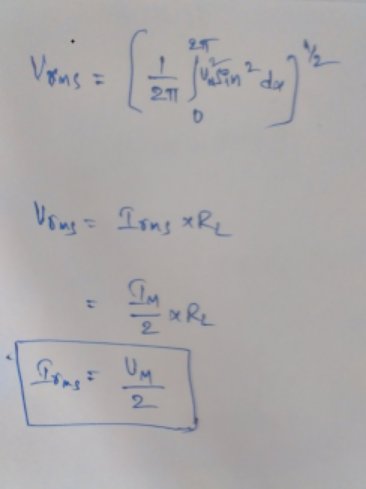 Vrms = [ 1/2π ∫₀^2π Vm² Sin² dx ]^1/2
Vrms = Irms × RL
= IM/2 × RL
Irms = VM/2